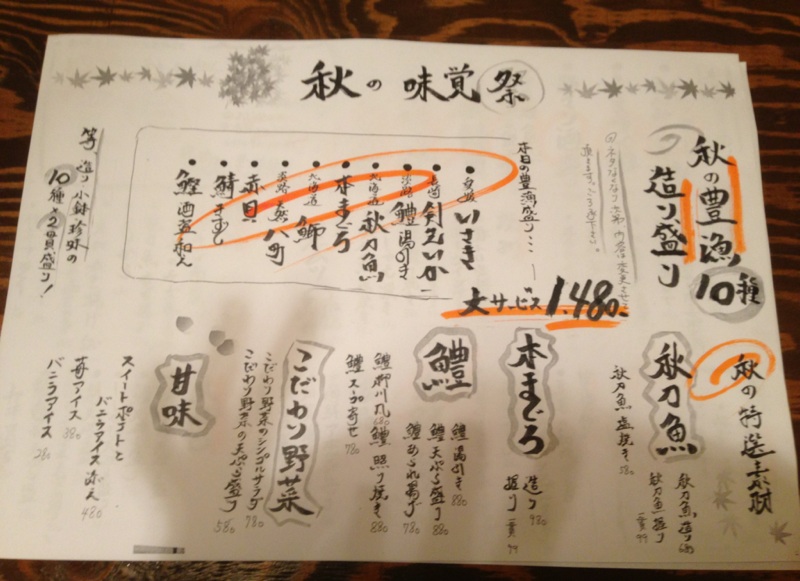 秋の味覚祭
秋の豊漁10種
造り盛り
本日の豊漁盛り…
いさき
剣先いか
淡路 鱧湯引き
北海道 秋刀魚
本まぐろ
北海道 鰤
淡路 天然 八町
赤貝
鯖きずし
鰹酒盗和え
等 造り・小鉢・珍味の
10種・2貫盛り!
大サービス 1.480.
秋の特選素材
秋刀魚
秋刀魚造り
秋刀魚握り 一貫99
秋刀魚塩焼き 580
本まぐろ
造り 980
握り 一貫99
鱧
鱧湯引き 880
鱧天ぷら盛り 880
鱧あられ揚げ 780
鱧照り焼き 880
鱧柳川風 680
鱧スープ寄せ 780
こだわり野菜
こだわり野菜のシンプルサラダ 780
こだわり野菜の天ぷら盛り 580
甘味
スイートポテトと
バニラアイス添え 480
苺アイス 380
バニラアイス 280